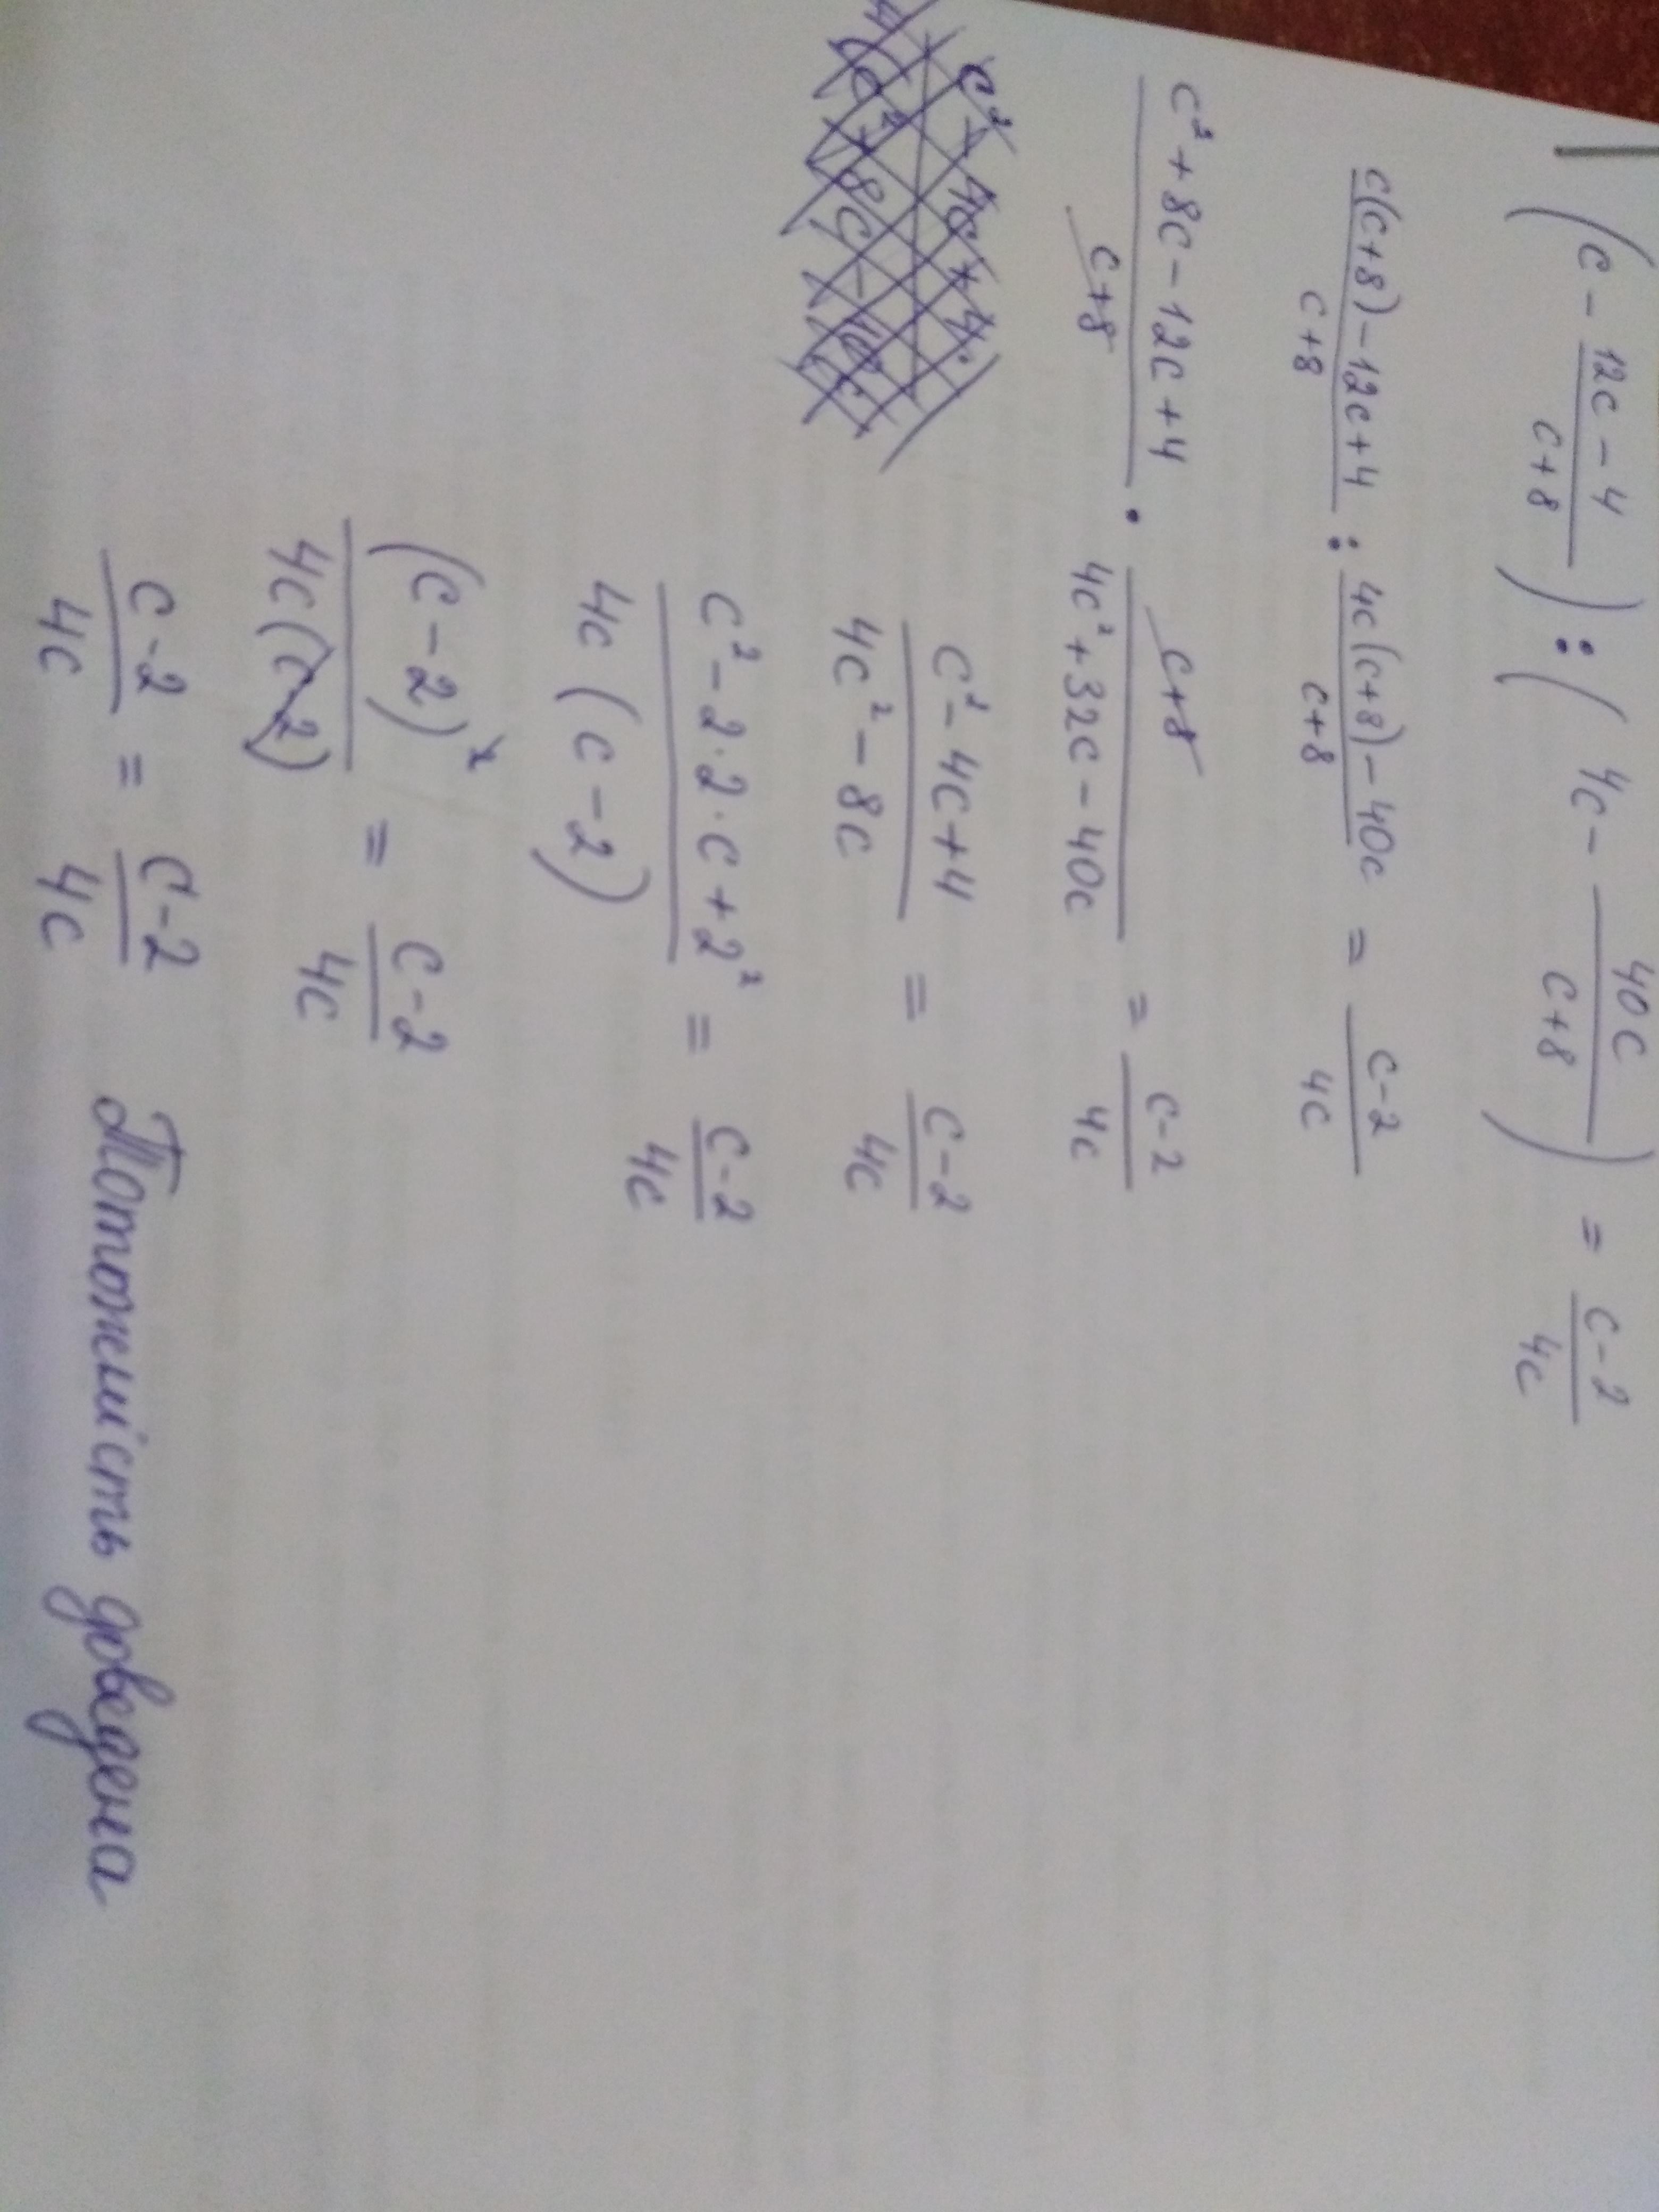 (c - \frac{12c-4}{c+8}) : (4c - \frac{40c}{c+8}) = \frac{c-2}{4c}
\frac{c(c+8)-12c+4}{c+8} : \frac{4c(c+8)-40c}{c+8} = \frac{c-2}{4c}
\frac{c²+8c-12c+4}{c+8} · \frac{c+8}{4c²+32c-40c} = \frac{c-2}{4c}
\frac{c²-4c+4}{4c²-8c} = \frac{c-2}{4c}
\frac{c²-2·2·c+2²}{4c(c-2)} = \frac{c-2}{4c}
\frac{(c-2)²}{4c(c-2)} = \frac{c-2}{4c}
\frac{c-2}{4c} = \frac{c-2}{4c} Тотожність доведена